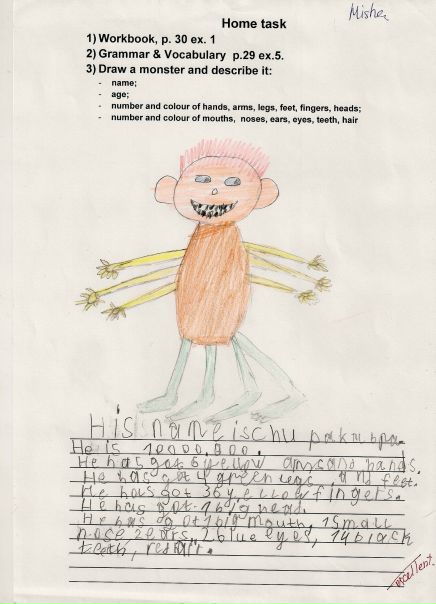 Misha
Home task
1) Workbook, p. 30 ex. 1
2) Grammar & Vocabulary p.29 ex.5.
3) Draw a monster and describe it:
- name;
- age;
- number and colour of hands, arms, legs, feet, fingers, heads;
- number and colour of mouths, noses, ears, eyes, teeth, hair
His name is chu pakabpa.
He is 10000,900.
He has got 6 yellow arms and hands.
He has got 4 green legs and feet.
He has got 36 yellow fingers.
He has got 1 big head.
He has got 1 big mouth, 1 small
nose, 2 ears, 2 blue eyes, 14 black
teeth,
excellent